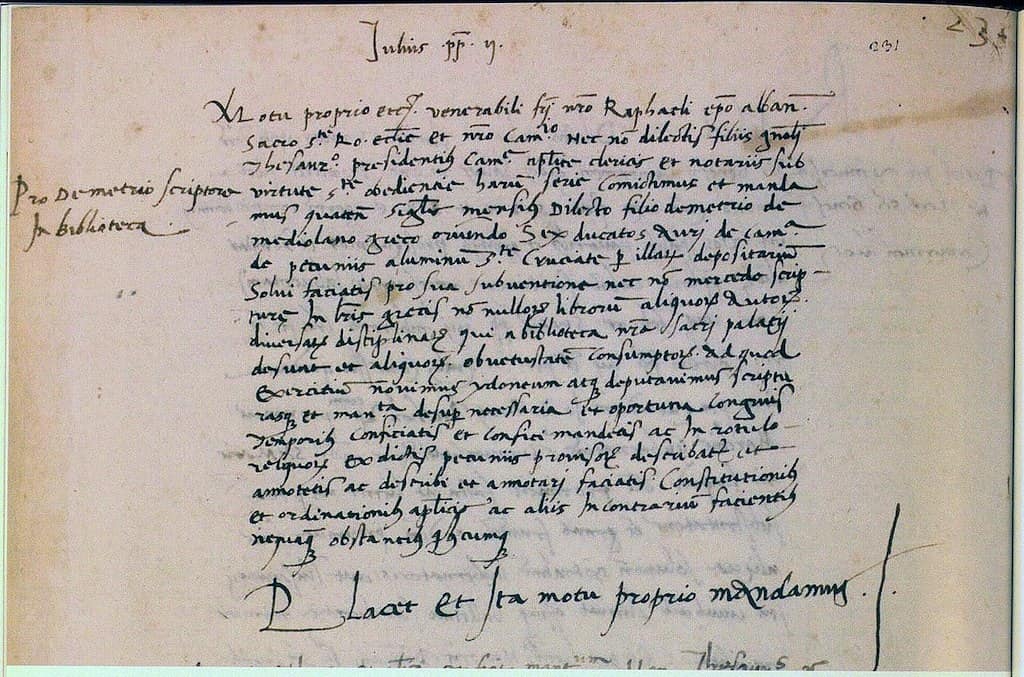 Iulius .pp. ii.
231
23
Motu proprio etc. venerabili frī nr̄o Raphaeli epō alban̄.
Sacro s.te Ro. ecclīe et nr̄o Cam.rio Nec nō dilectis filiis gn̄ali
Thesaur.o presidentib; Cam.e aplīce clericis et notariis sub
Pro Demetrio scriptore
In biblioteca
virtute s.te obedientie harum serie Comictimus et manda
mus quaten; singlīs mensib; Dilecto filio demetrio de
mediolano greco oriundo Sex ducatos Auri de Cam.a
de pecuniis aluminum s.te Cruciate p illar; depositarium
Solvi faciatis pro sua subventione nec nō mercede scrip-
ture In lrīs grecis nōnullor; librorum aliquor; Autor;
diversar; disciplinar; qui a biblioteca nrā sacri palatii
desunt et aliquor; ob vetustatē Consumptor;. Ad quod
Exercitium novimus ydoneum atq; deputavimus scriptu
rasq; et man.ta desup necessaria et oportuna Congruis
Temporib; Conficiatis et Confici mandetis ac In rotulo
reliquor; Ex dictis pecuniis provisor; describatis et
annotetis ac describi et annotari faciatis Constitutionib;
et ordinationib; aplīcis ac aliis In contrarium facientib;
nequaq; obstantib; qbuscumq;
Placet et Ita motu proprio mandamus.